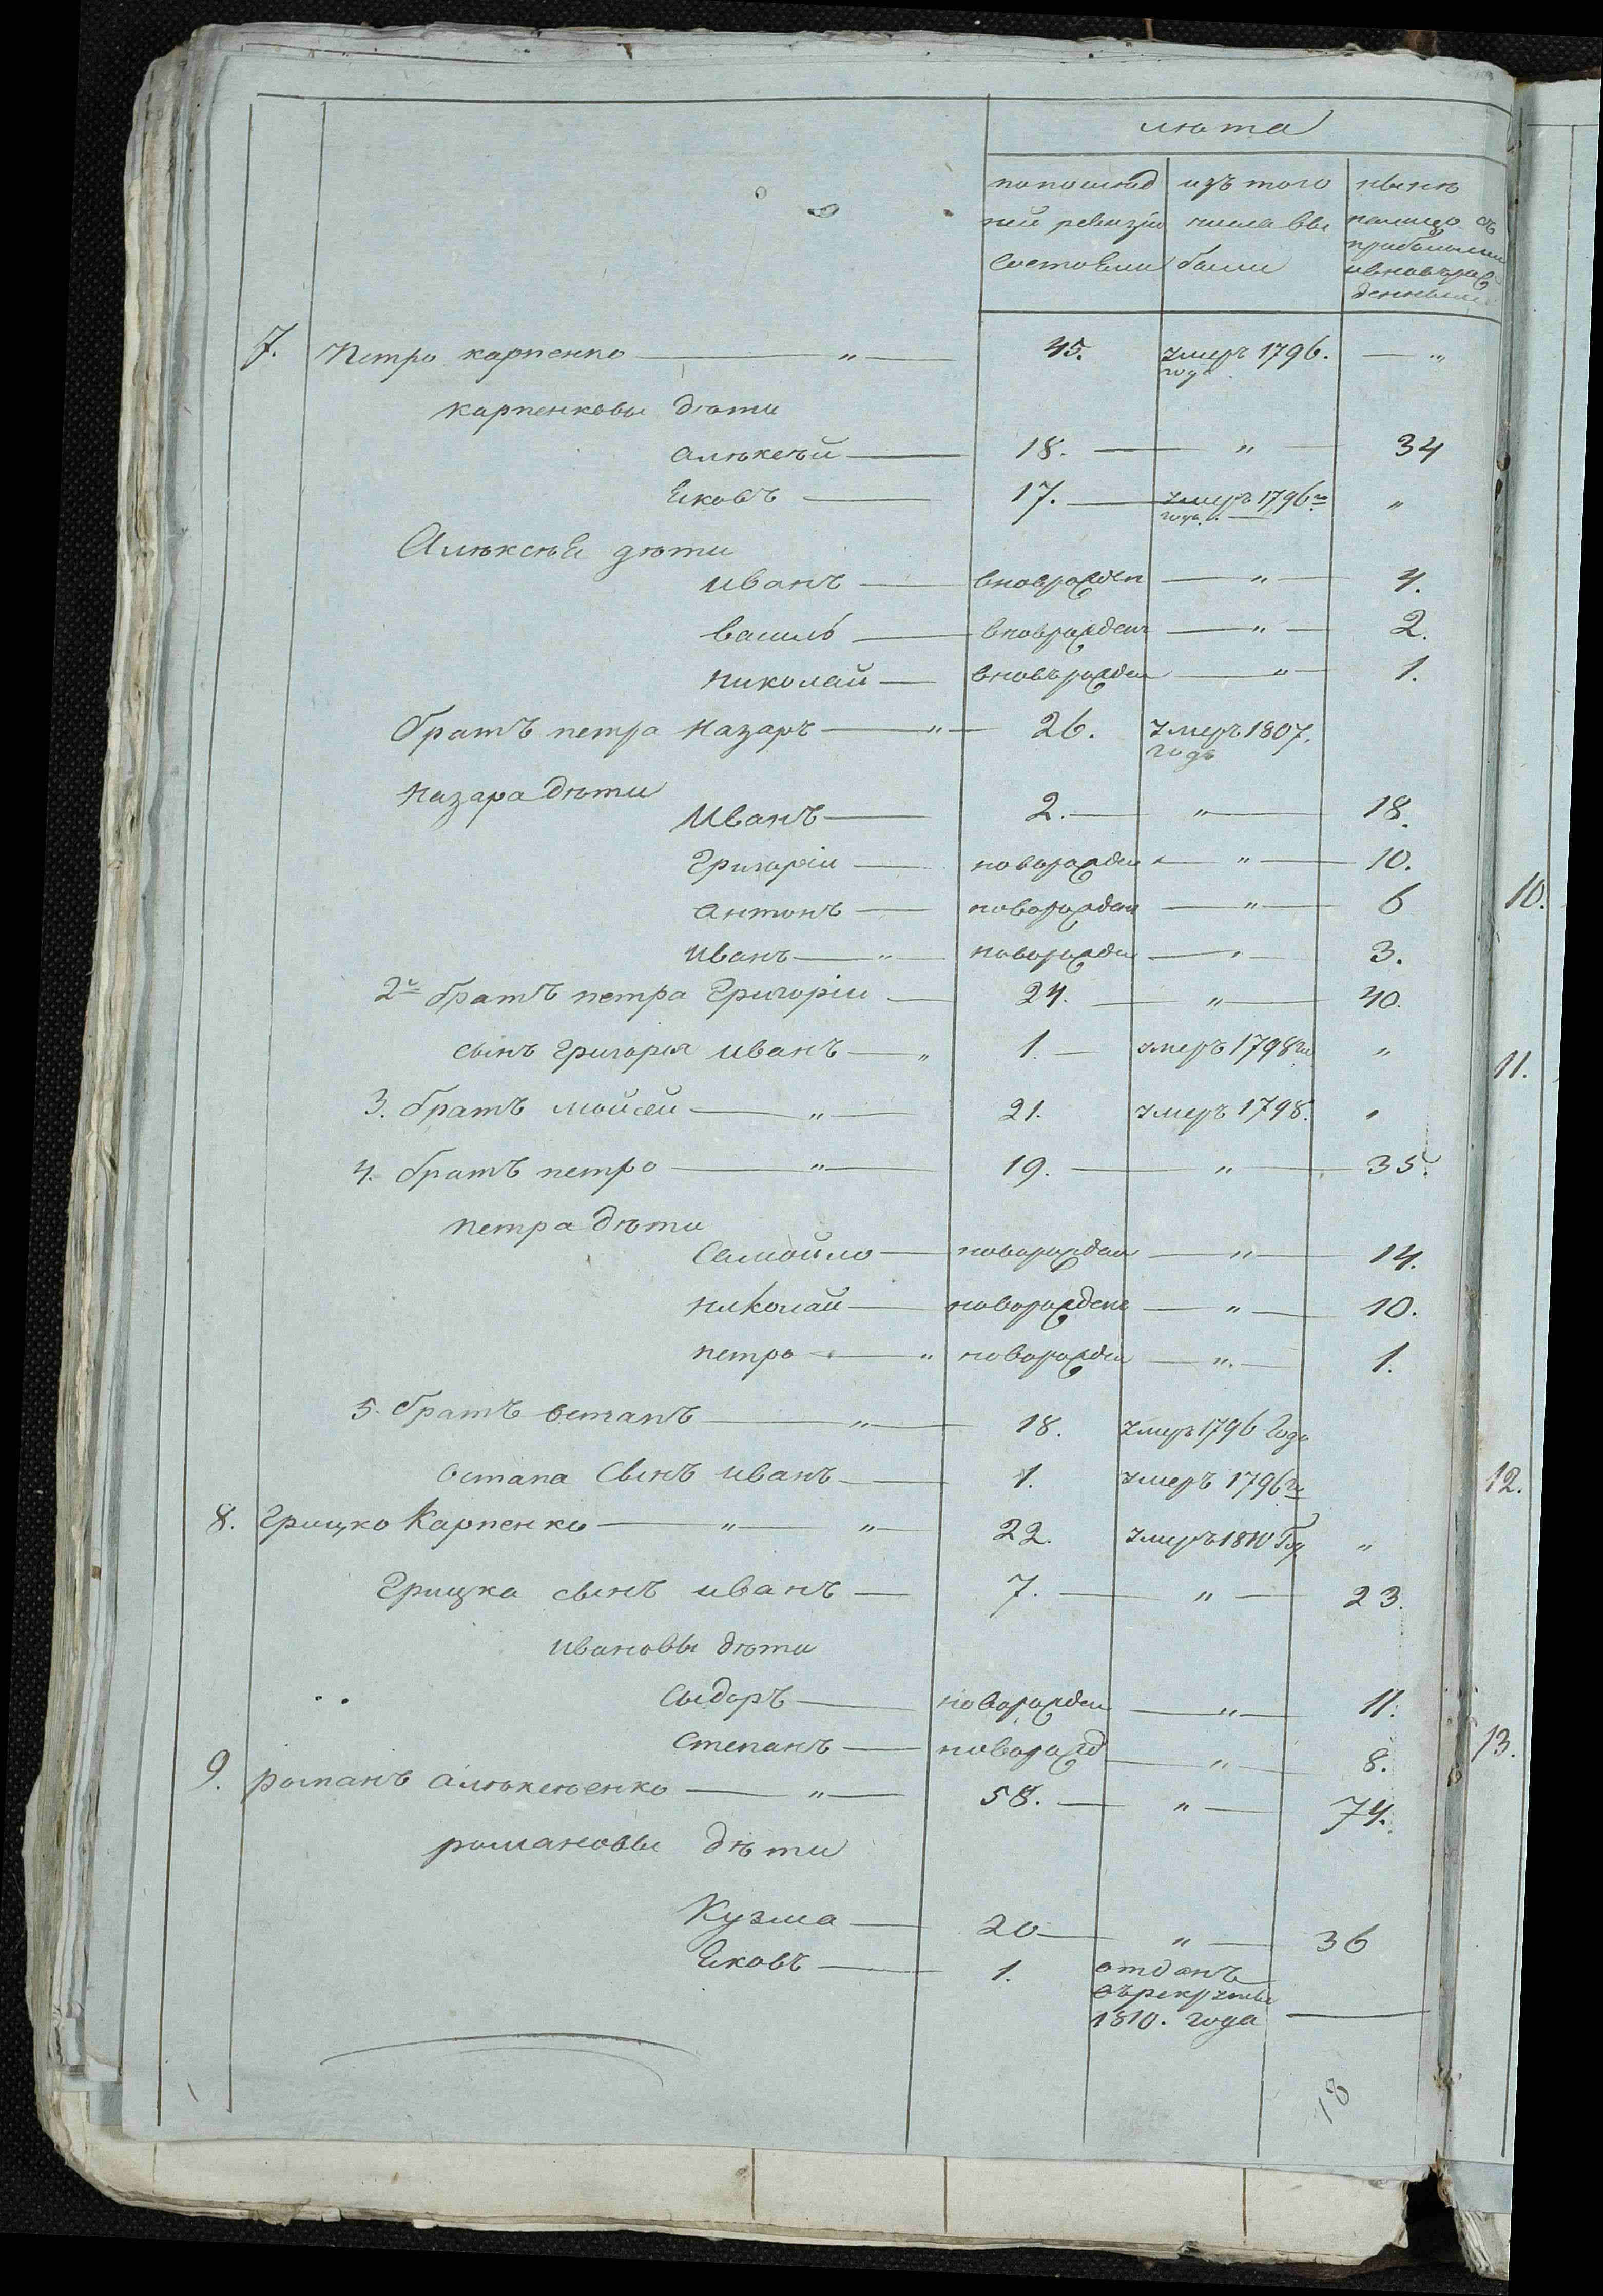 лѣта
попослѣд изъ того нынѣ
ней ревизіи числа вы налицо съ
состояли были прибылыми
ивновьрож
денными
7. Петро карпенко — „ — 45. умеръ 1796. — „
года
карпенковы дѣти
алѣксѣй — 18. — „ — 34
Яковъ — 17. — умеръ 1796го „
года
Алѣксѣя дѣти
иванъ — вноврожден — „ — 4.
василь — вноврожденъ — „ — 2.
николай — вновьрожден — „ — 1.
братъ петра назаръ — „ — 26. умеръ 1807.
годъ
назара дѣти
Иванъ — 2. — „ — 18.
Григоріи — новорожден — „ — 10.
антонъ — новорожден — „ — 6
иванъ — „ — новорожден — „ — 3.
2й братъ петра Григоріи — 24. — „ — 40.
сынъ григорія иванъ — „ 1. — умеръ 1798го „
3. братъ мойсей — „ — 21. умеръ 1798. „
4. братъ петро — „ — 19. — „ — 35.
петра дѣти
Самойло — новорожден — „ — 14.
николай — новорожден — „ — 10.
петро — „ новорожден — „ — 1.
5. братъ остапъ — „ — 18. умеръ 1796 года
остапа сынъ иванъ — 1. умеръ 1796го
8. Грицко Карпенко — „ — „ — 22. умеръ 1810 Год „
Грицка сынъ иванъ — 7. — „ — 23.
ивановы дѣти
сыдоръ — новорожден — „ — 11.
степанъ — новорожд — „ — 8.
9. романъ алѣксѣенко — „ — 58. — „ — 74.
романовы дѣти
Кузма — 20 — „ — 36
Яковъ — 1. отданъ
върекруты
1810. года —
18
10.
11.
12.
13.